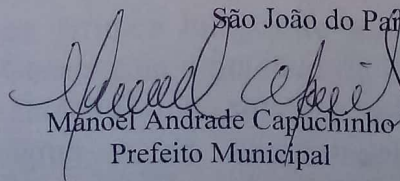 São João do Par
Manoel Andrade Capuchinho
Prefeito Municipal